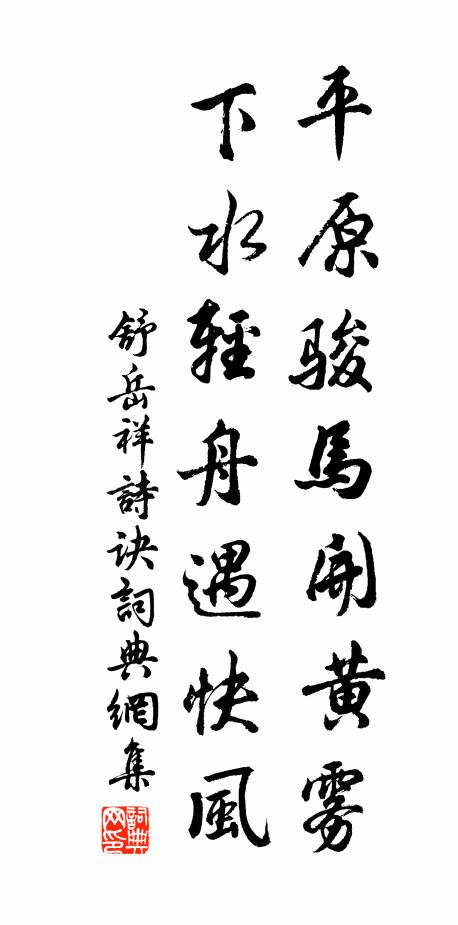 平原駿馬開黃霧
下水輕舟遇快風
舒岳祥詩訣詞典網集
詞典网印